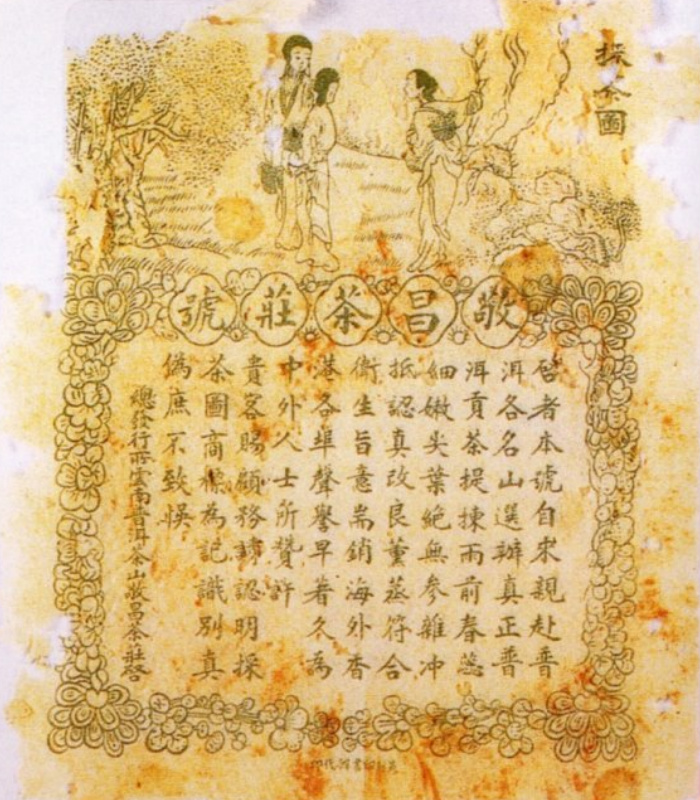 採茶圖
敬昌茶莊號
啓者本號自來親赴普
洱各名山選辦真正普
洱貢茶提揀雨前春蕊
細嫩尖葉絕無參雜冲
抵認真改良薰蒸符合
衛生旨意耑銷海外香
港各埠聲譽早著久為
中外人士所贊許
貴客賜顧務請認明採
茶圖商標為記識別真
偽庶不致悞
總發行所雲南普洱茶山敬昌茶莊啓